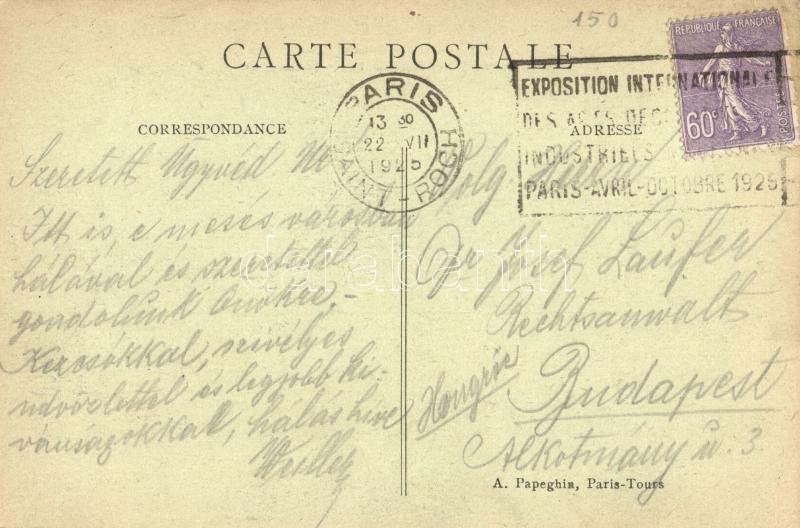 150
CARTE POSTALE
RÉPUBLIQUE FRANÇAISE
60c
POSTES
EXPOSITION INTERNATIONALE
DES ARTS DÉCO
INDUSTRIELS
PARIS-AVRIL-OCTOBRE 1925
PARIS
13 30
22 VII
1925
SAINT-ROCH
CORRESPONDANCE
ADRESSE
Szeretett Ügyvéd
Itt is, e meses városban
hálával és szeretettel
gondolunk Önökre.-
Kézcsókkal, szivélyes
üdvözlettel és legjobb ki-
vánságokkal, hálás hive
Dr Josef Laufer
Rechtsanwalt
Budapest
Hongrie
Alkotmány u. 3
A. Papeghin, Paris-Tours
darabanth